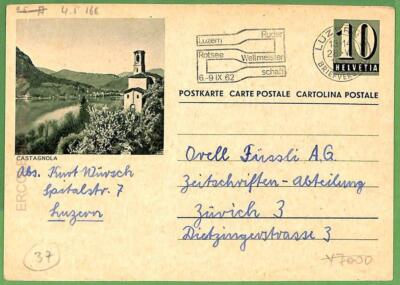 4.5 16E
Luzern Ruder
Rotsee Weltmeister
schaft
6.-9 IX 62
LUZERN
BRIEFVERS
10
HELVETIA
POSTKARTE CARTE POSTALE CARTOLINA POSTALE
CASTAGNOLA
Abs. Kurt Würsch
Spitalstr. 7
Luzern
Orell Füssli A.G.
Zeitschriften-Abteilung
Zürich 3
Dietzingerstrasse 3
37